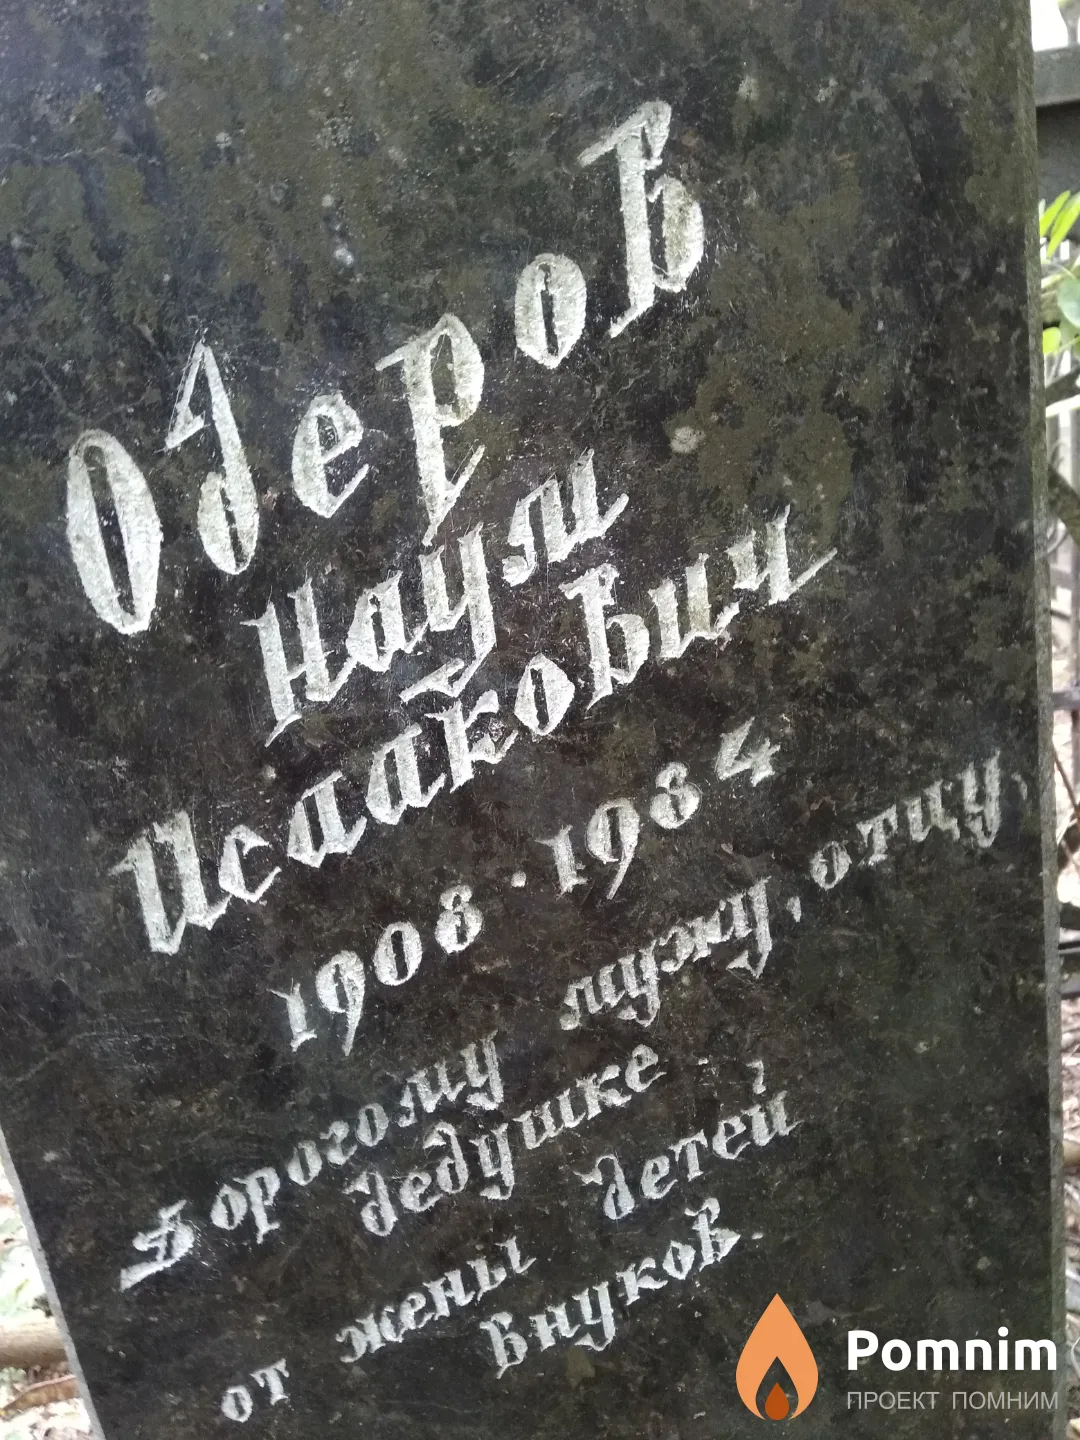 Одеров
Наум
Исаакович
1908 · 1984
Дорогому мужу, отцу,
дедушке
от жены, детей
внуков.
Pomnim
ПРОЕКТ ПОМНИМ